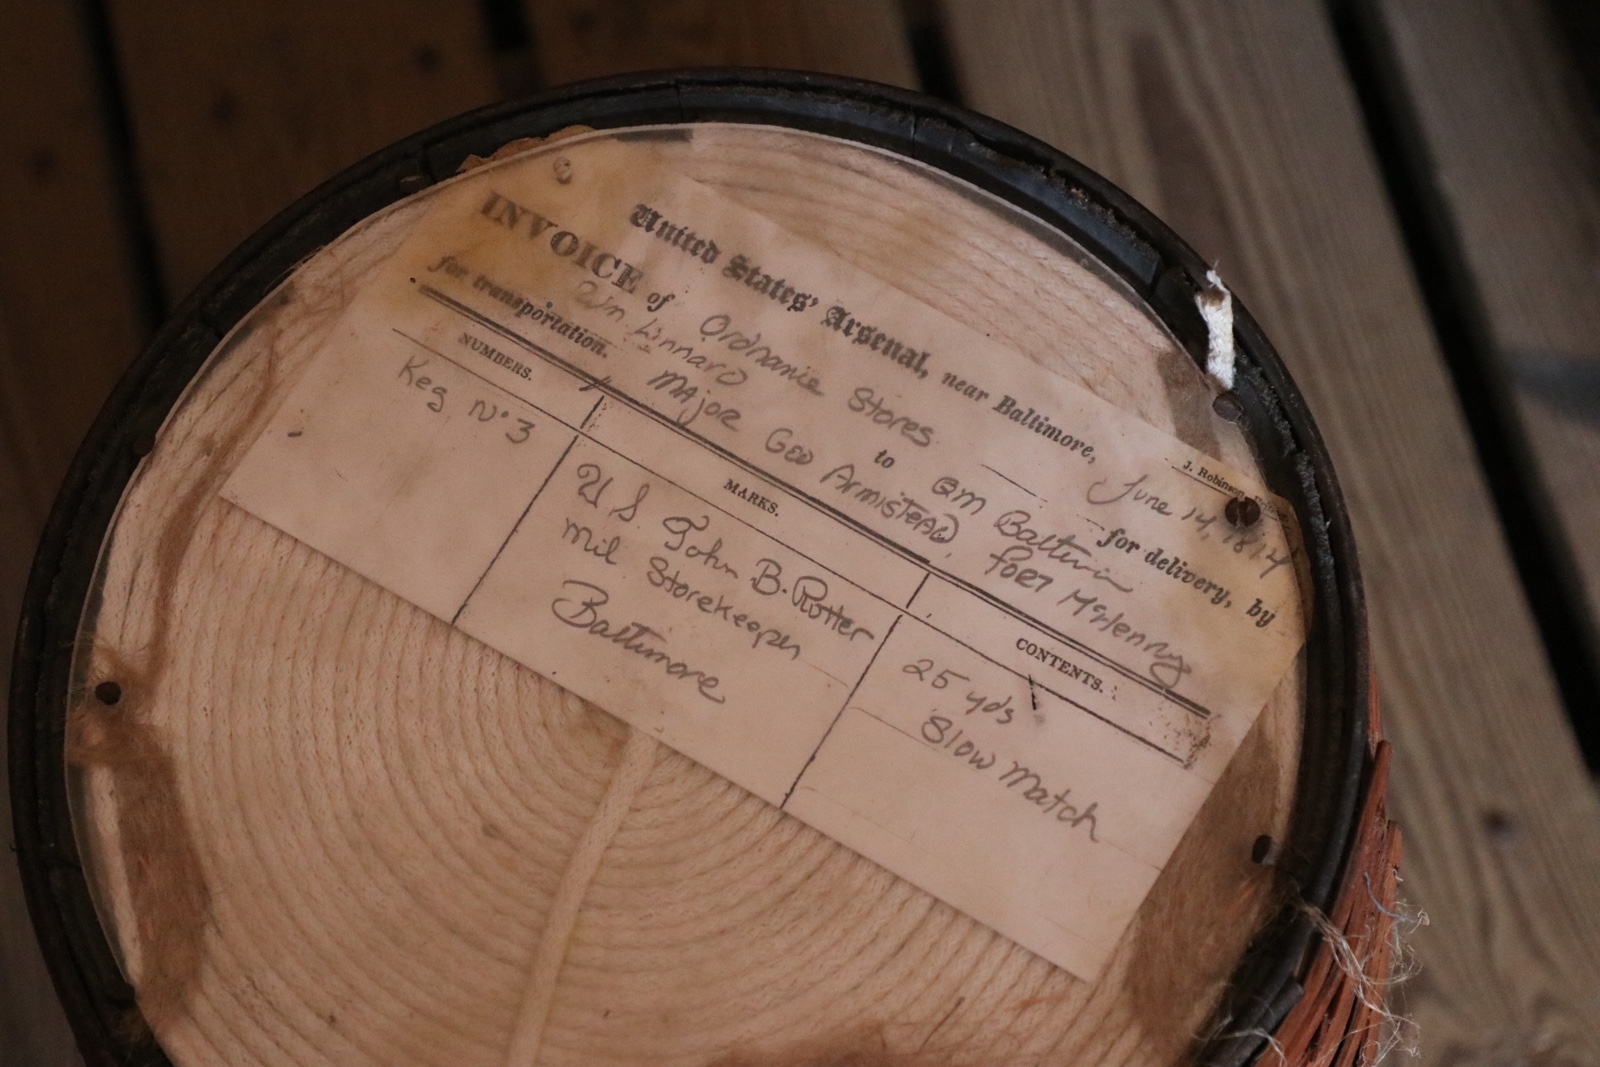 J. Robinson,
United States' Arsenal, near Baltimore, June 14, 1814
INVOICE of Ordnance Stores to QM Baltimore for delivery, by
Wm Linnard Major Geo Armistead, Fort McHenry
for transportation.
NUMBERS. MARKS. CONTENTS.
Keg No 3
U S. John B. Rutter
Mil Storekeeper
Baltimore
25 yds
Slow Match